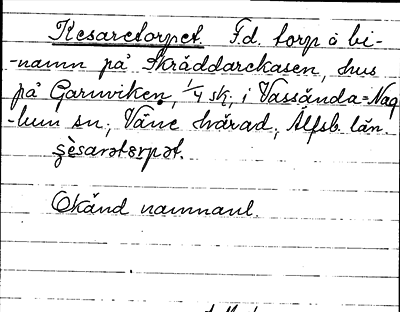 Kesaretorpet. F.d. torp o bi-
-namn på Skräddarekasen, hus
på Garnviken, 1/4 sk, i Vassända=Nag
-lum sn; Väne härad, Älfsb. län.
şèsarətɛrpət.
Okänd namnanl.